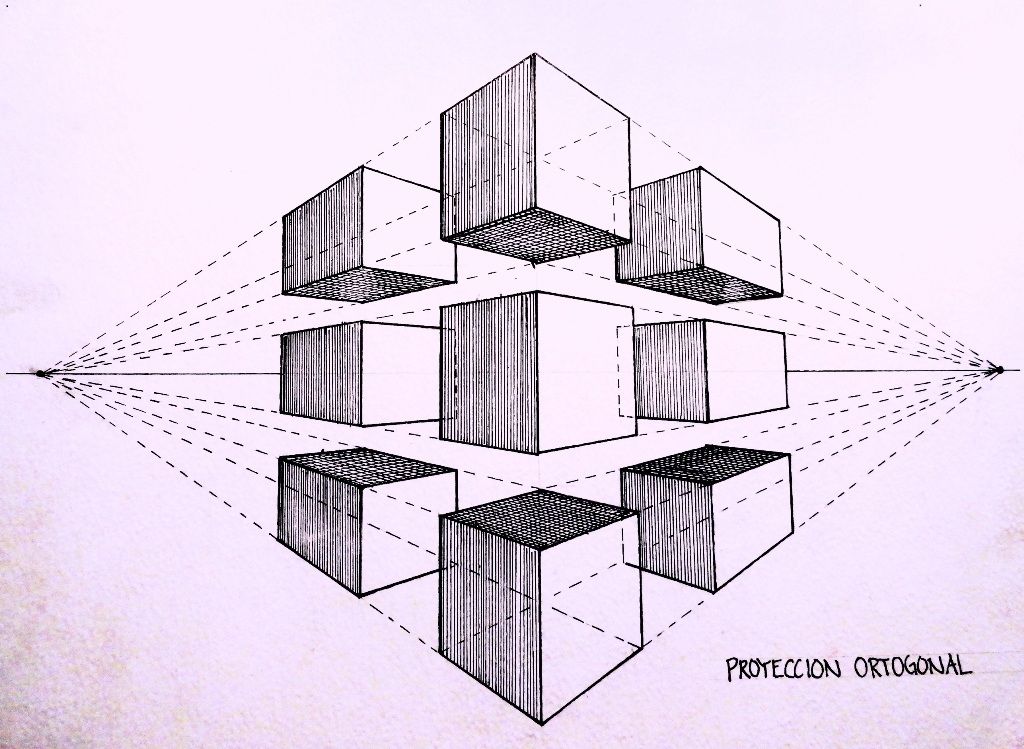 PROYECCION ORTOGONAL